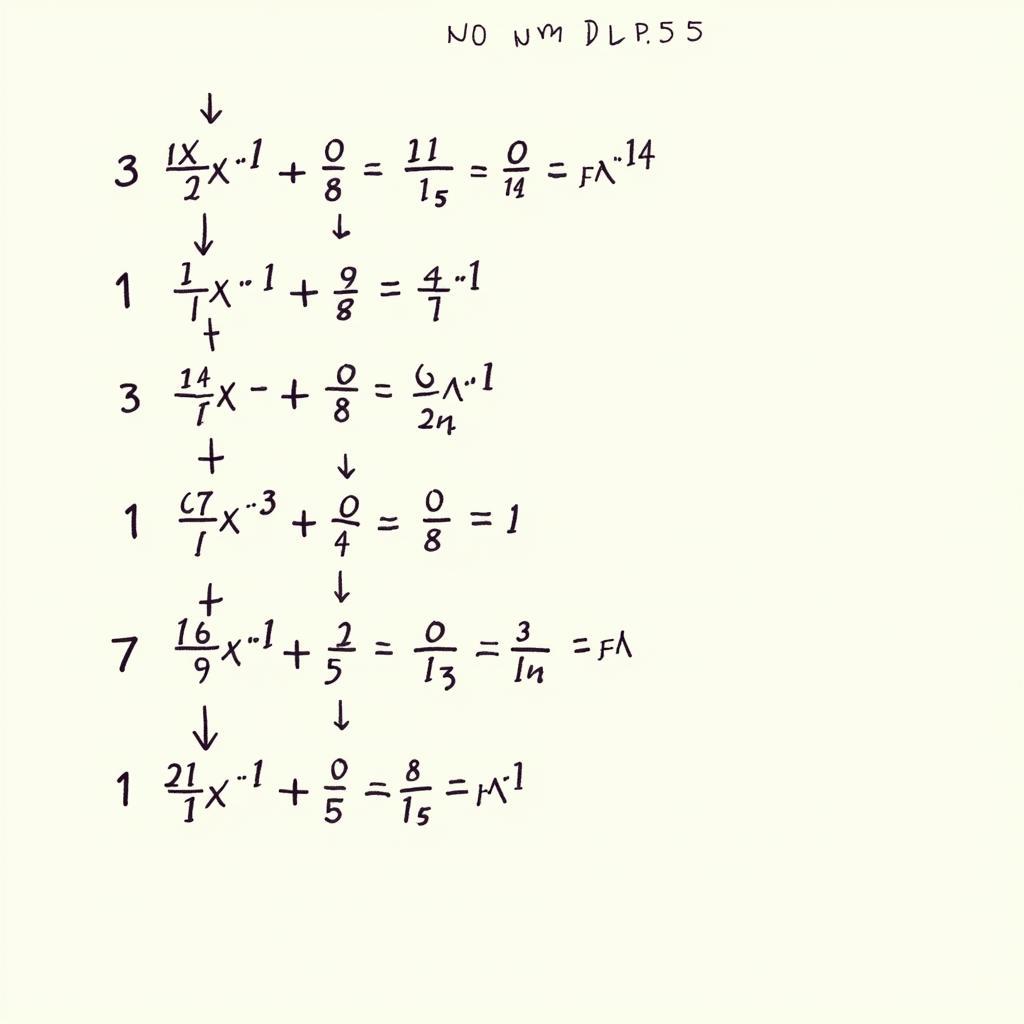 NO NM DLP.55
↓
3 1X/2 x··1 + 0/8 = 11/15 = 0/14 = FΛ··14
↓ ↓
1 1/1 x··1 + 9/8 = 4/7··1
+
3 14/1 x - + 0/8 = 6/2n Λ··1
+ ↓
1 67/1 x··3 + 0/4 = 0/8 = 1
+ ↓
7 16/9 x··1 + 2/5 = 0/13 = 3/1n = FΛ
↓ ↓
1 21/1 x··1 + 0/5 = 8/15 =